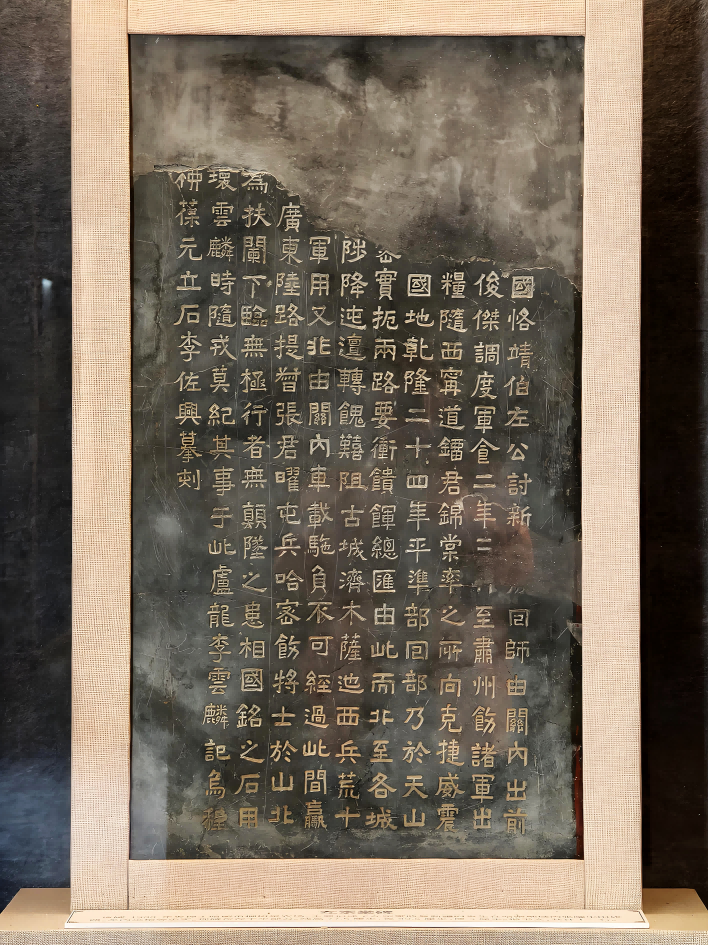 國恪靖伯左公討新回師由關內出前
俊傑調度軍食二年二至肅州飭諸軍出
糧隨西甯道鐂君錦棠率之所向克捷威震
國地乾隆二十四年平準部回部乃於天山
密實扼兩路要衝饋餫總匯由此而北至各城
陟降迍邅轉餽囏阻古城濟木薩迤西兵荒十
軍用又非由關內車載駞負不可經過此間贏
廣東陸路提督張君曜屯兵哈密飭將士於山北
為扶闌下臨無極行者無顛墜之患相國銘之石用
環雲麟時隨戎莫紀其事于此盧龍李雲麟記烏程
葆元立石李佐興摹刻